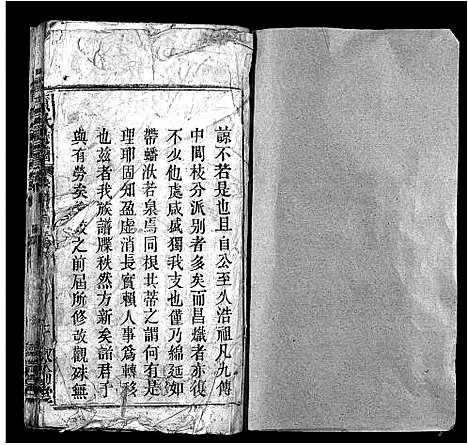 諒不若是也且自公至久浩祖凡九傳
中間枝分派別者多矣而昌熾者亦復
不少他處咸咸獨我支也僅乃綿延如
帶蟠泳若泉焉同根共蒂之謂何有是
理耶固知盈虛消長實賴人事為轉移
也茲者我族譜牒秩然方新矣諸君子
與有勞矣之前屆所修改觀殊無